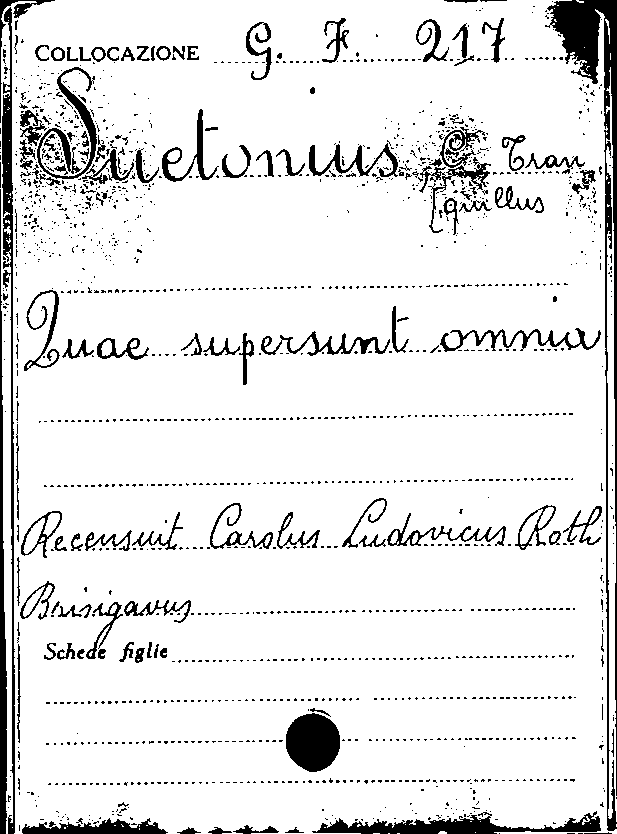 COLLOCAZIONE G. F. 217
Suetonius, C. Tran
[quillus
Quae supersunt omnia
Recensuit Carolus Ludovicus Roth
Brisigavus
Schede figlie